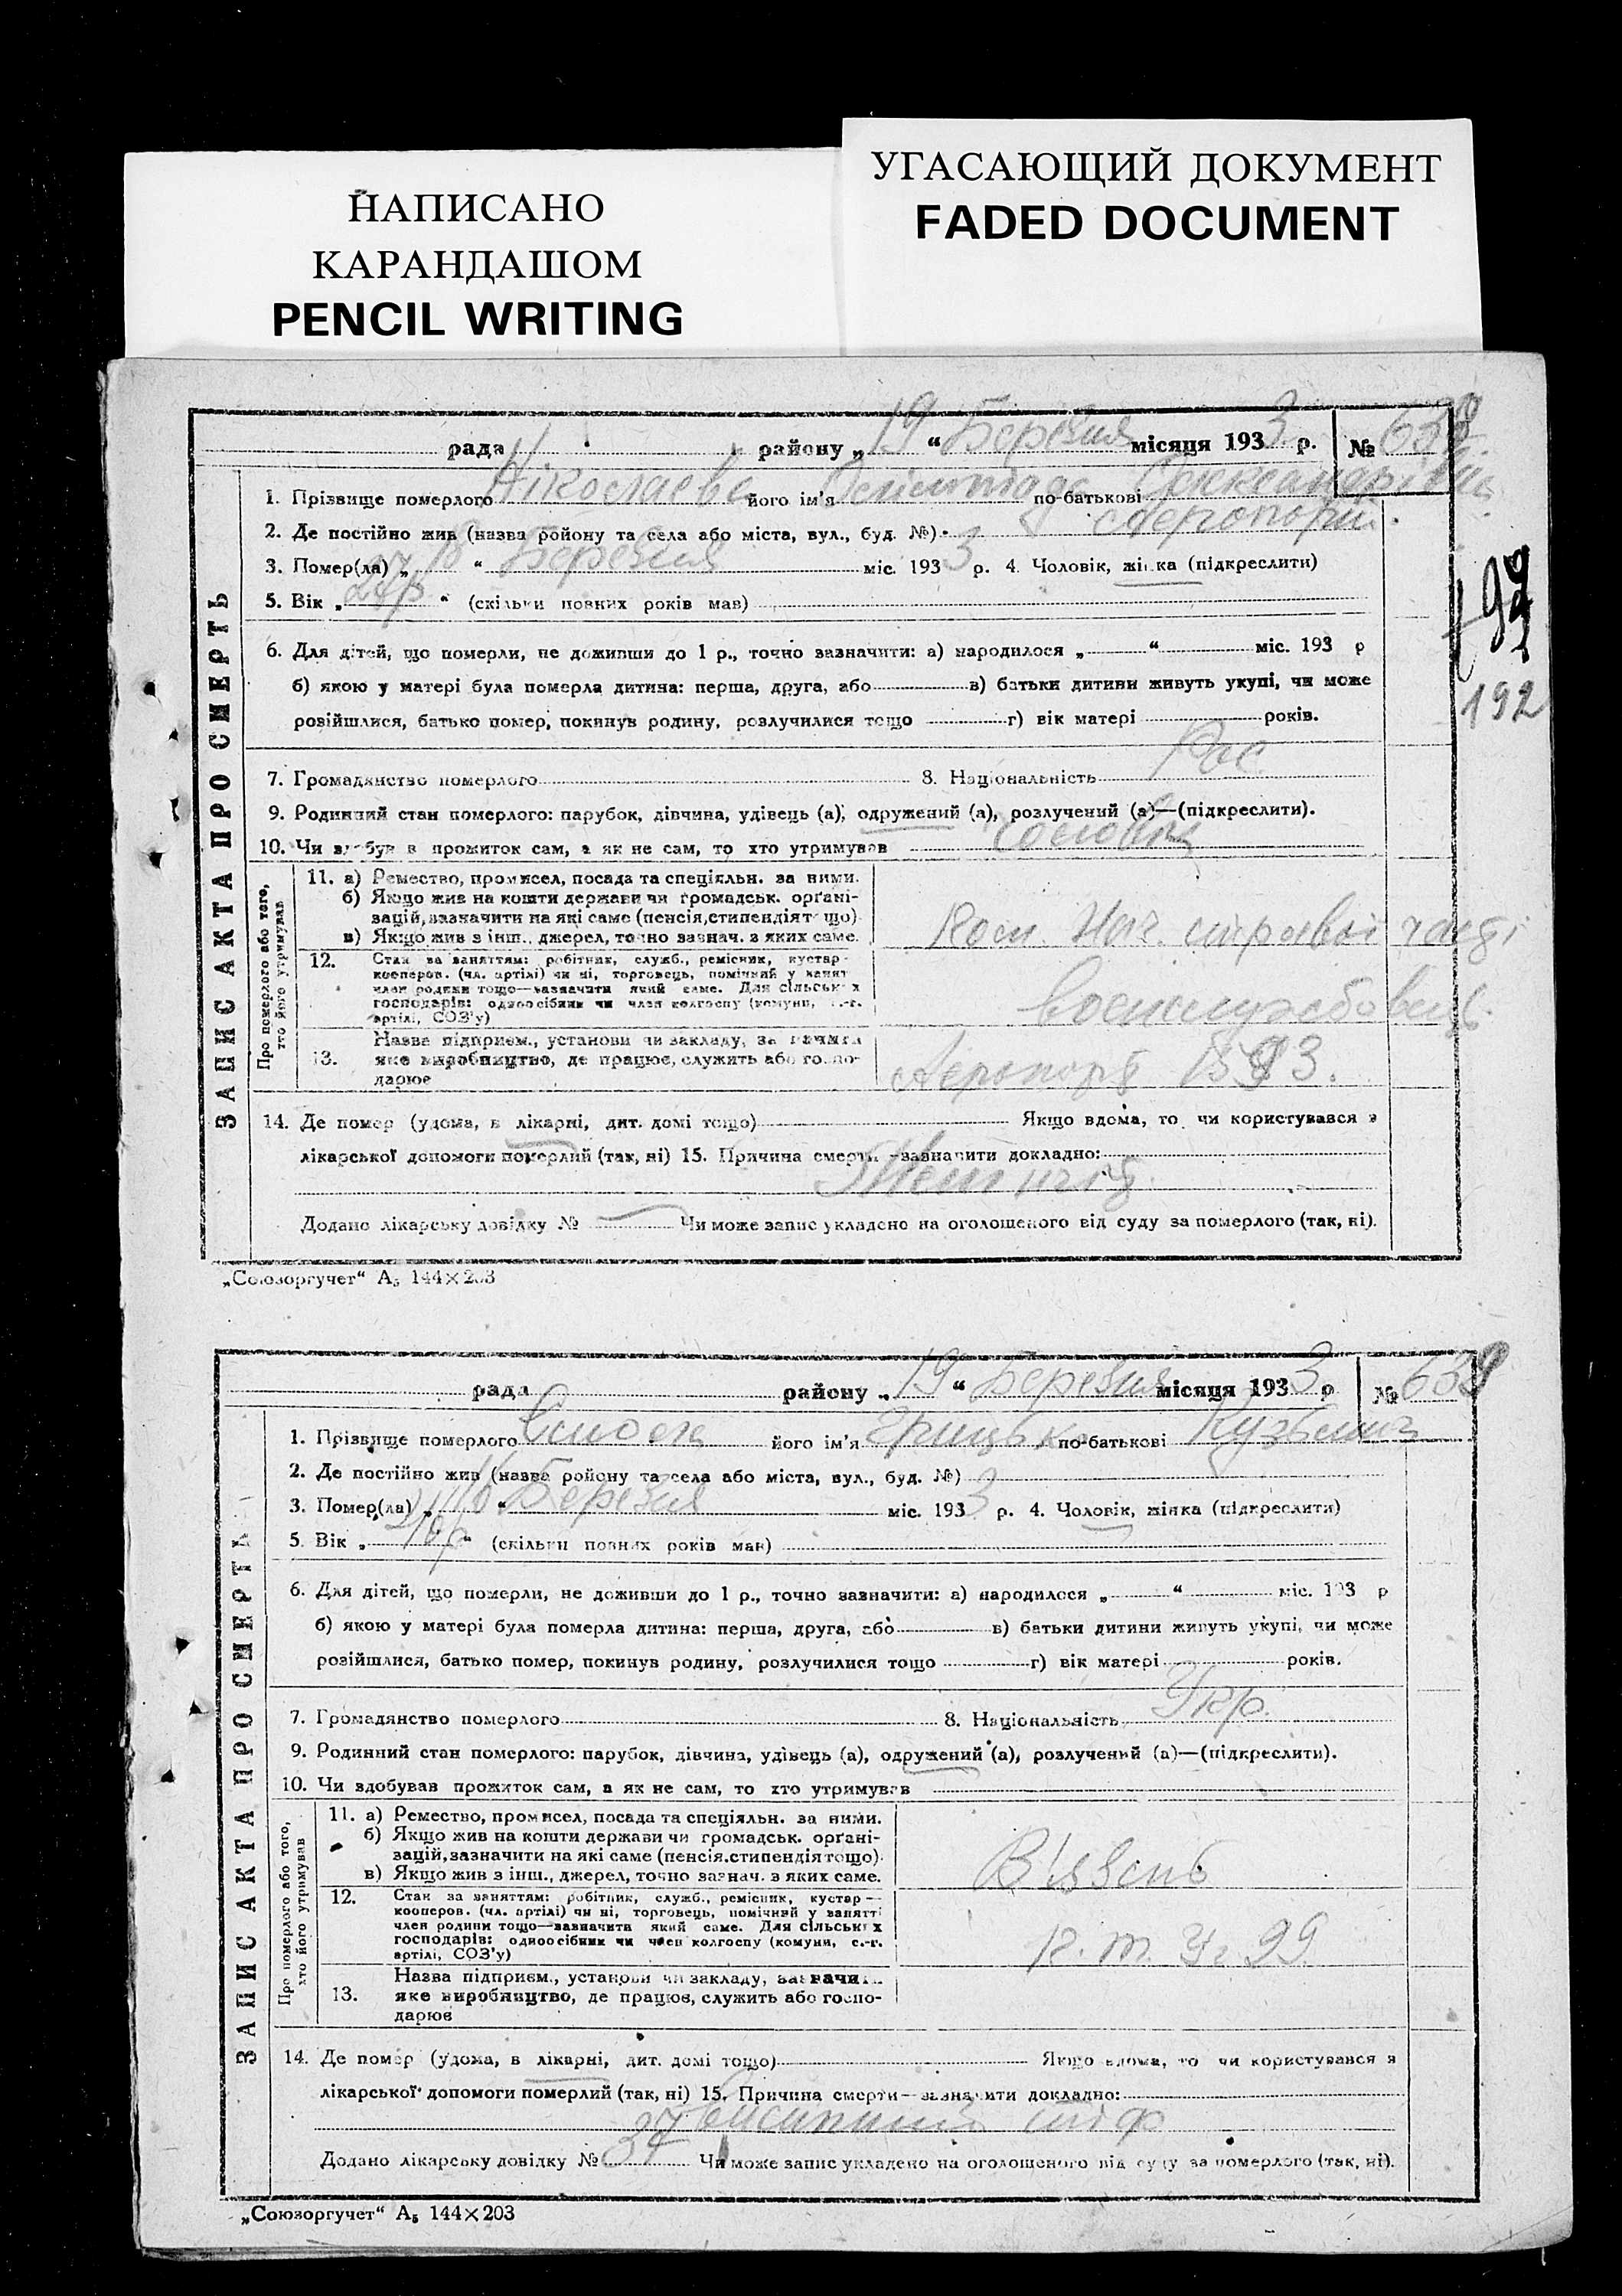 НАПИСАНО
КАРАНДАШОМ
PENCIL WRITING
УГАСАЮЩИЙ ДОКУМЕНТ
FADED DOCUMENT
ЗАПИС АКТА ПРО СМЕРТЬ
рада району „19“ Березня місяця 1933 р. № 638
1. Прізвище померлого Ніколаєва його ім'я по-батькові Олександрівна
2. Де постійно жив (назва ройону та села або міста, вул., буд. №) Аеропорт
3. Помер(ла) „ “ Березня міс. 1933 р. 4. Чоловік, жінка (підкреслити)
5. Вік „ “ (скільки повних років мав)
6. Для дітей, що померли, не доживши до 1 р., точно зазначити: а) народилося „ “ міс. 193 р
б) якою у матері була померла дитина: перша, друга, або в) батьки дитини живуть укупі, чи може
розійшлися, батько помер, покинув родину, розлучилися тощо г) вік матері років.
192
7. Громадянство померлого 8. Національність Рос
9. Родинний стан померлого: парубок, дівчина, удівець (а), одружений (а), розлучений (а)—(підкреслити).
10. Чи здобував прожиток сам, а як не сам, то хто утримував чоловік
Про померлого або того, хто його утримував
11. а) Ремество, промисел, посада та спеціяльн. за ними.
б) Якщо жив на кошти держави чи громадськ. органі-
зацій, зазначити на які саме (пенсія, стипендія тощо).
в) Якщо жив з інш., джерел, точно зазнач. з яких саме.
Пом. Нач. стройвої часті
12. Стан за заняттям: робітник, служб., ремісник, кустар-
кооперов. (чл. артілі) чи ні, торговець, помічний у занят
член родини тощо—зазначити який саме. Для сільських
господарів: одноосібник чи член колгоспу (комуни, с.-г.
артілі, СОЗ'у)
13. Назва підприєм., установи чи закладу, зазначити
яке виробництво, де працює, служить або госпо-
дарює
Аеропорт
14. Де помер (удома, в лікарні, дит. домі тощо) Якщо вдома, то чи користувався з
лікарської допомоги померлий (так, ні) 15. Причина смерти—зазначити докладно:
Менінгіт
Додано лікарську довідку № Чи може запис укладено на оголошеного від суду за померлого (так, ні).
„Союзоргучет“ А5 144×203
ЗАПИС АКТА ПРО СМЕРТЬ
рада району „19“ Березня місяця 1933 р № 639
1. Прізвище померлого його ім'я Грицько по-батькові Кузьмич
2. Де постійно жив (назва ройону та села або міста, вул., буд. №)
3. Помер(ла) „16“ Березня міс. 1933 р. 4. Чоловік, жінка (підкреслити)
5. Вік „ “ (скільки повних років мав)
6. Для дітей, що померли, не доживши до 1 р., точно зазначити: а) народилося „ “ міс. 193 р
б) якою у матері була померла дитина: перша, друга, або в) батьки дитини живуть укупі, чи може
розійшлися, батько помер, покинув родину, розлучилися тощо г) вік матері років.
7. Громадянство померлого 8. Національність Укр.
9. Родинний стан померлого: парубок, дівчина, удівець (а), одружений (а), розлучений (а)—(підкреслити).
10. Чи здобував прожиток сам, а як не сам, то хто утримував
Про померлого або того, хто його утримував
11. а) Ремество, промисел, посада та спеціяльн. за ними.
б) Якщо жив на кошти держави чи громадськ. органі-
зацій, зазначити на які саме (пенсія, стипендія тощо).
в) Якщо жив з інш., джерел, точно зазнач. з яких саме.
Вязень
12. Стан за заняттям: робітник, служб., ремісник, кустар—
кооперов. (чл. артілі) чи ні, торговець, помічний у занятті
член родини тощо—зазначити який саме. Для сільських
господарів: одноосібник чи член колгоспу (комуни, с.-г.
артілі, СОЗ'у)
13. Назва підприєм., установи чи закладу, зазначити
яке виробництво, де працює, служить або госпо-
дарює
14. Де помер (удома, в лікарні, дит. домі тощо) Якщо вдома, то чи користувався з
лікарської допомоги померлий (так, ні) 15. Причина смерти—зазначити докладно:
Висипний тіф
Додано лікарську довідку № 37 Чи може запис укладено на оголошеного від суду за померлого (так, ні).
„Союзоргучет“ А5 144×203